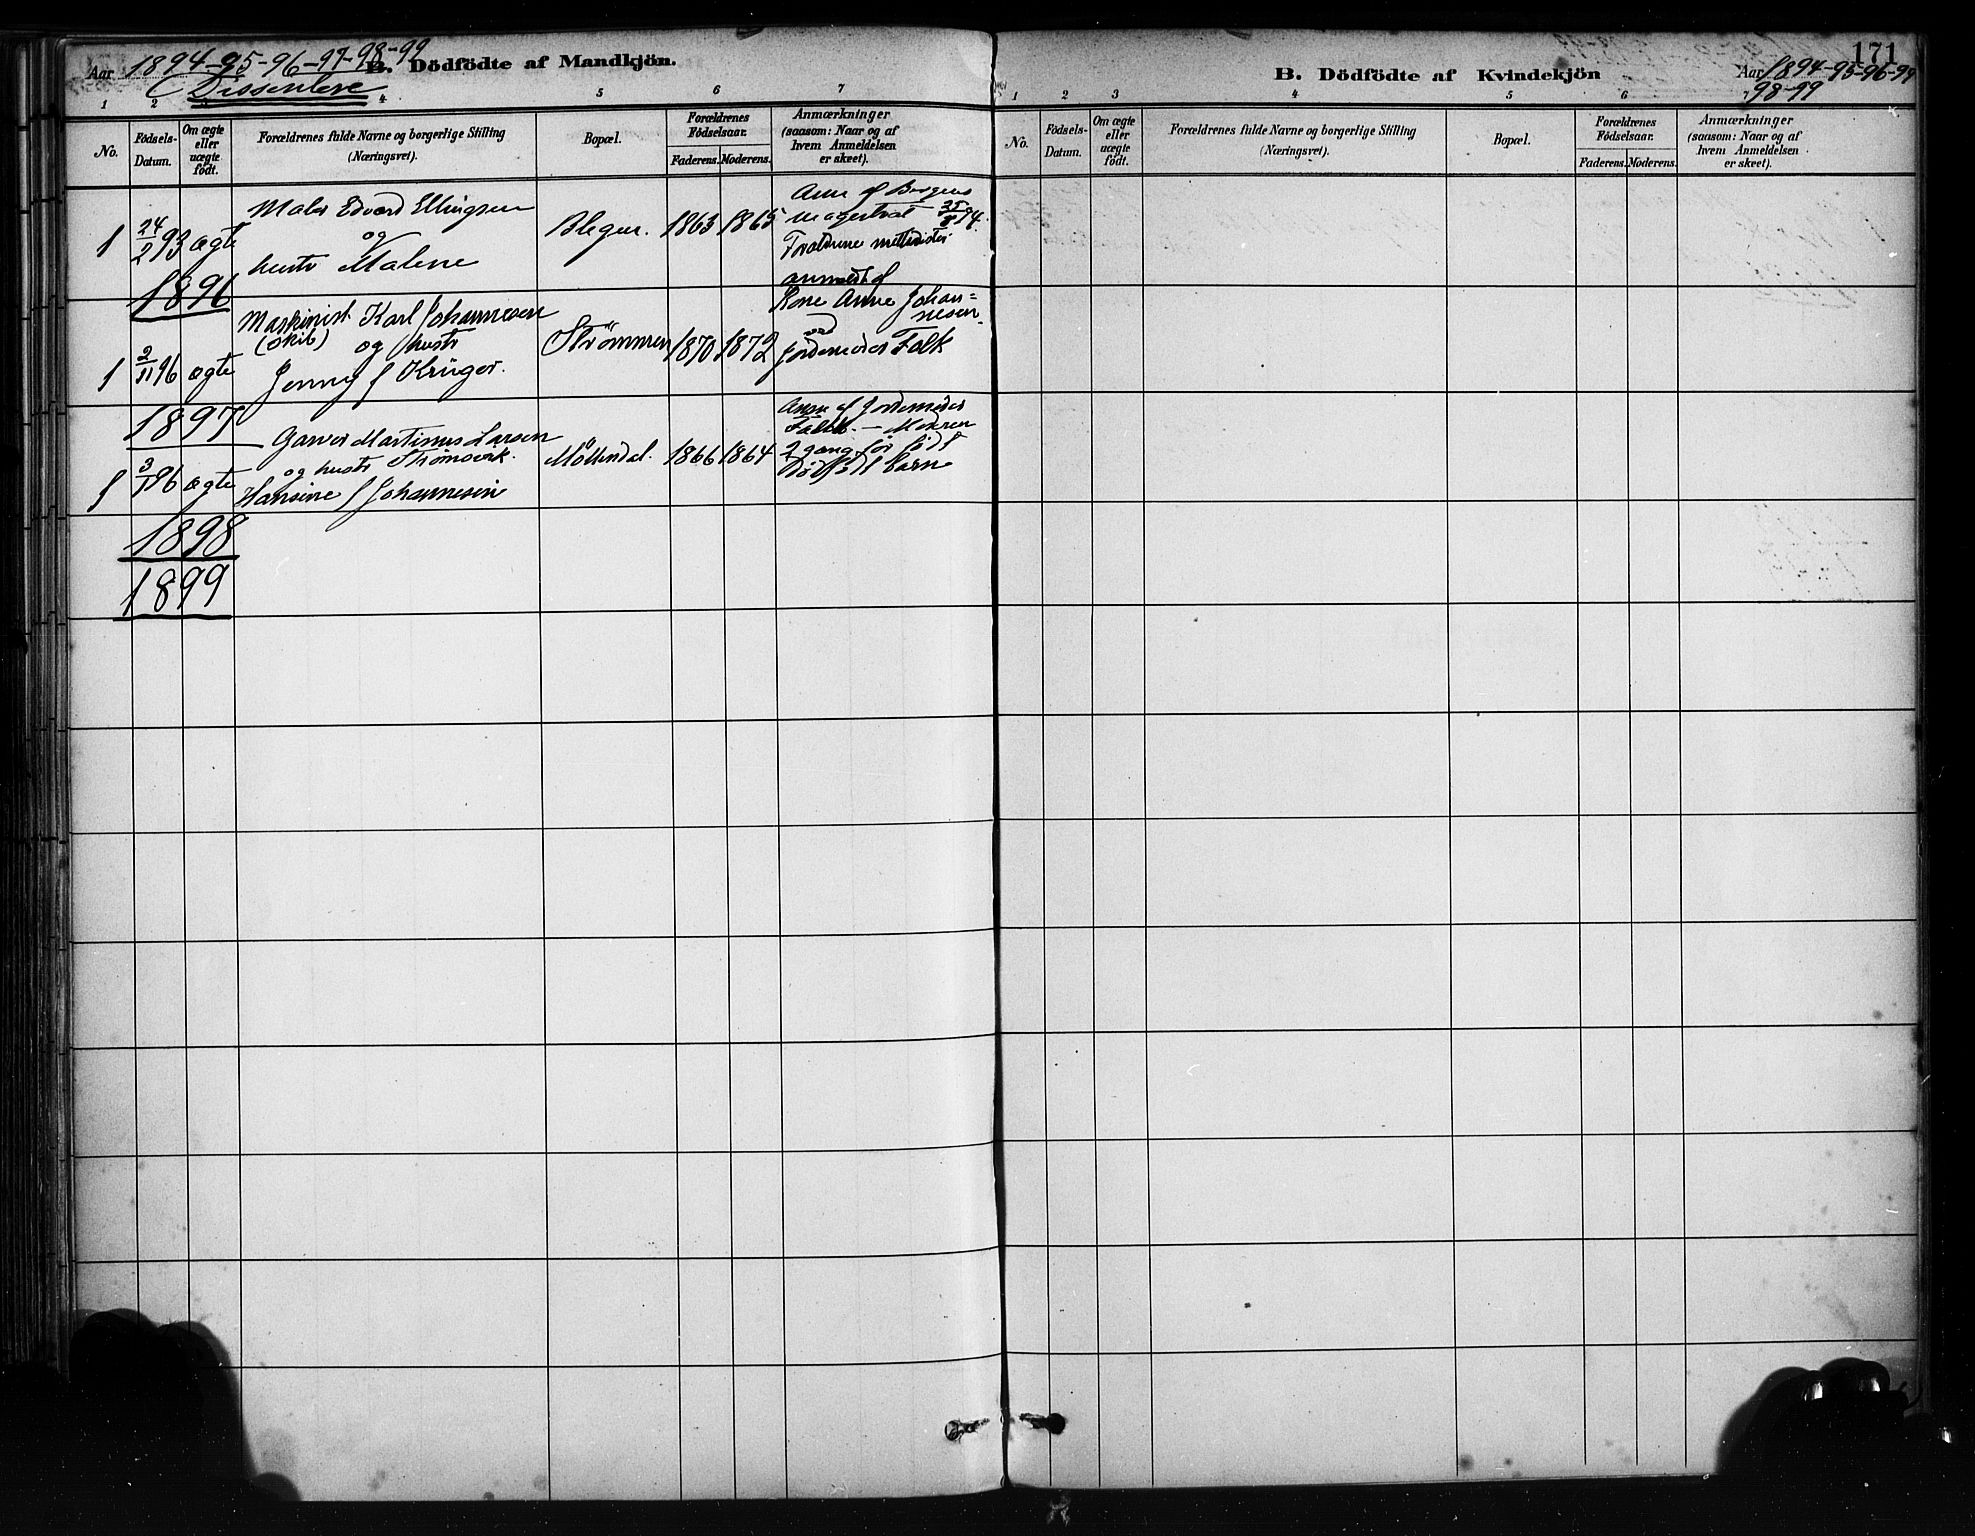 Aar 1894-95-96-97-98-99
B. Dödfödte af Mandkjön.
Dissentere
1 2 3 4 5 6 7
No.
Födsels-Datum.
Om ægte eller uægte født.
Forældrenes fulde Navne og borgerlige Stilling
(Næringsvei).
Bopæl.
Forældrenes Födselsaar.
Faderens. Moderens.
Anmærkninger
(saasom: Naar og af
hvem Anmeldelsen
er skeet).
1 24/2 93 ægte
Maler Edvard Ellingsen
og
hustr Malene
1863 1865
Anm af Bergens
magistrat 25/8 94.
Forældrene methodister
1896
1 2/11 96 ægte
Maskinist Karl Johannesen
(skib) og hustr
Jenny f Krüger.
Strømmen 1870 1872
anmeldt af
Kone Anne Johan=
nesen
Jordemoder Falk
1897
1 3/1 96 ægte
Garver Martinus Larsen
og hustr Strømsvik.
Hansine f Johannesen
Möllendal. 1866 1864
Anm af Jordemoder
Falk. — Moderen
2 gang før født
dødfødt barn
1898
1899
171
B. Dödfödte af Kvindekjön
Aar 1894-95-96-97
98-99
1 2 3 4 5 6 7
No.
Födsels-
Datum.
Om ægte
eller
uægte
födt.
Forældrenes fulde Navne og borgerlige Stilling
(Næringsvei).
Bopæl.
Forældrenes
Födselsaar.
Faderens. Moderens.
Anmærkninger
(saasom: Naar og af
hvem Anmeldelsen
er skeet).